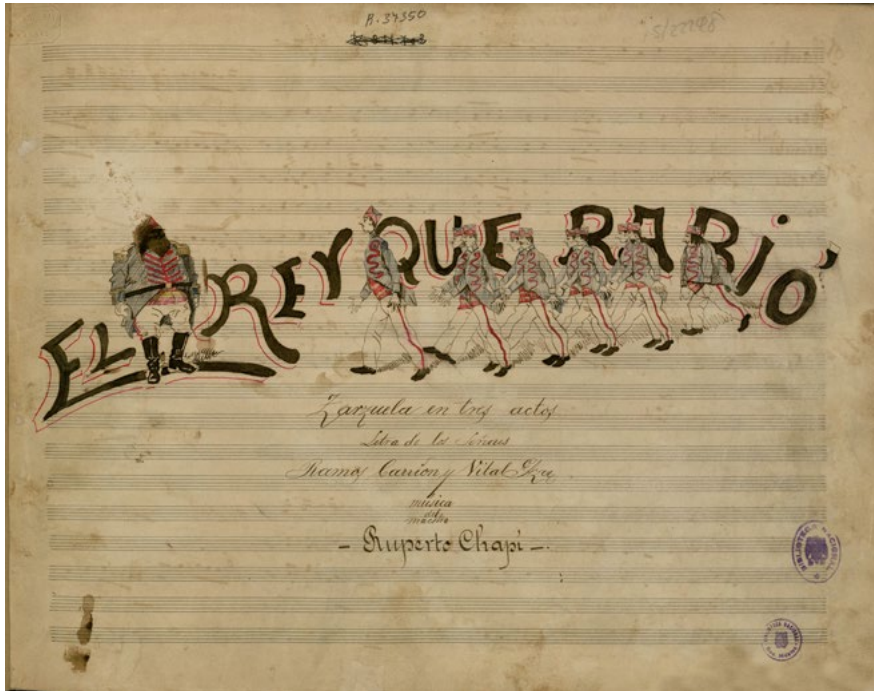 R. 37350
EL REY QUE RABIÓ
Zarzuela en tres actos
Letra de los Señores
Ramos Carrion y Vital Aza
música
del
maestro
- Ruperto Chapí -.
BIBLIOTECA NACIONAL
BIBLIOTECA NACIONAL